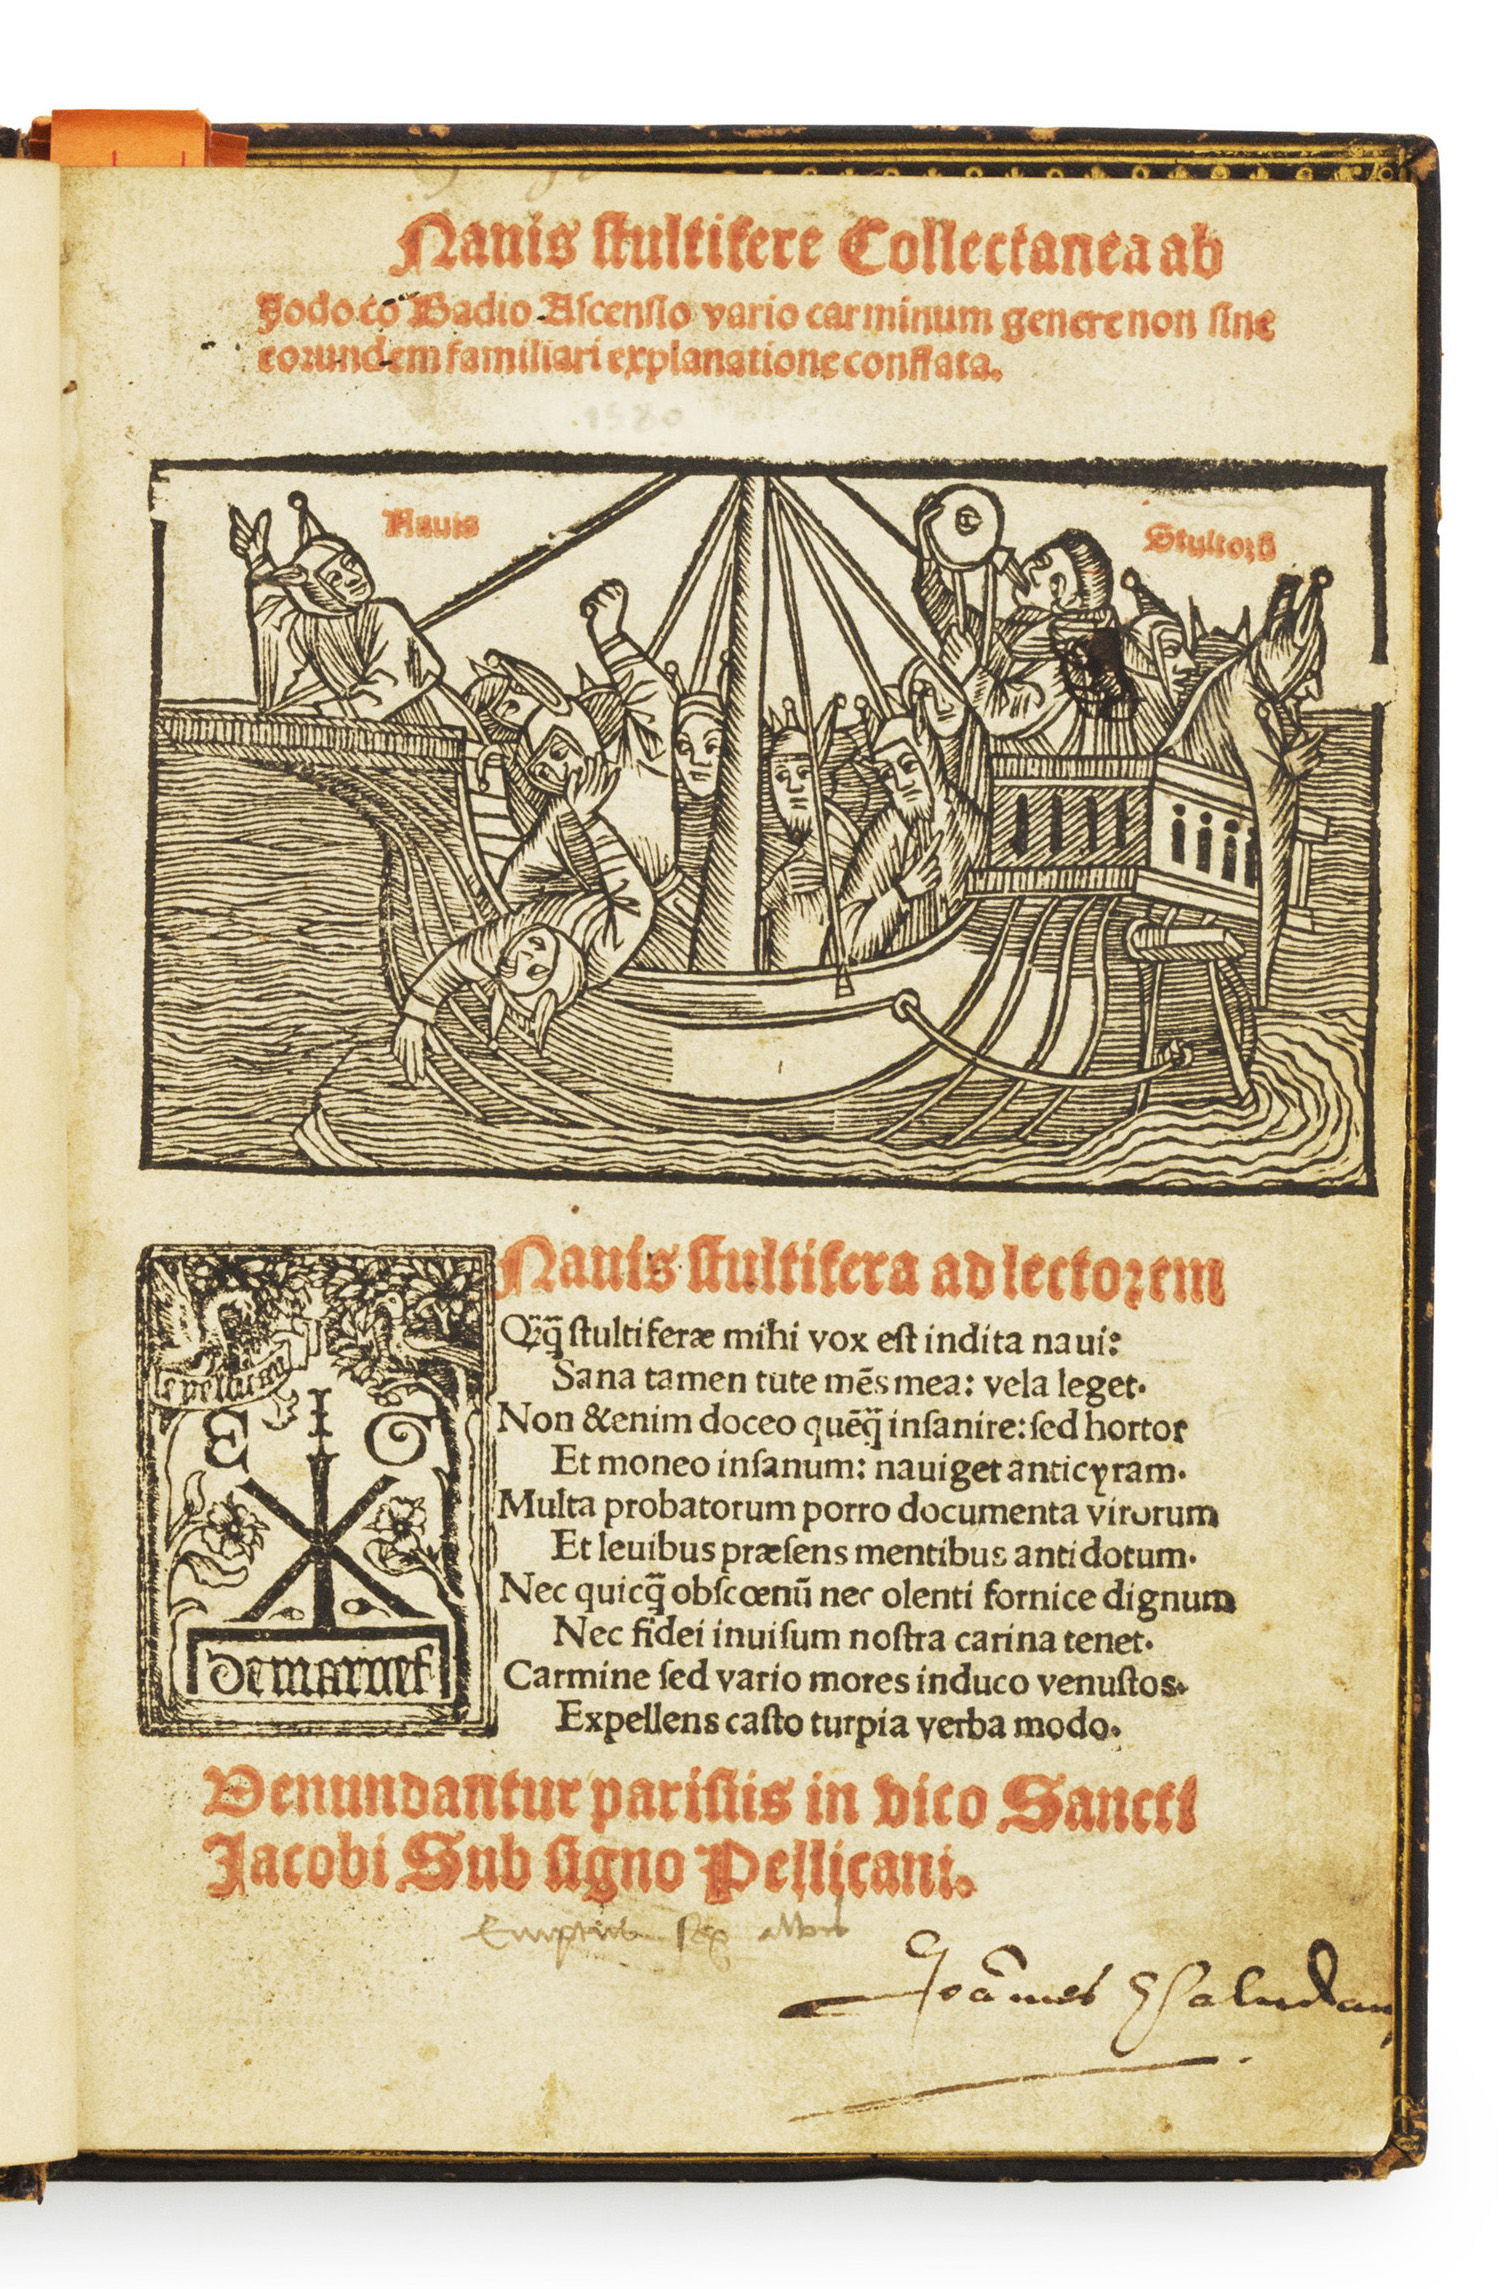 Nauis stultifere Collectanea ab
Jodoco Badio Ascensio vario carminum genere non sine
eorundem familiari explanatione conflata.
1580
Nauis
Stultorũ
le pelican
E I G
demarnef
Nauis stultifera ad lectorem
Qq̃ stultiferæ mihi vox est indita naui:
Sana tamen tute mẽs mea: vela leget.
Non &enim doceo quẽq̃ insanire: sed hortor
Et moneo insanum: nauiget anticyram.
Multa probatorum porro documenta virorum
Et leuibus præsens mentibus antidotum.
Nec quicq̃ obscœnũ nec olenti fornice dignum
Nec fidei inuisum nostra carina tenet.
Carmine sed vario mores induco venustos.
Expellens casto turpia verba modo.
Venundantur parisiis in vico Sancti
Jacobi Sub signo Pellicani.
Joãnnes